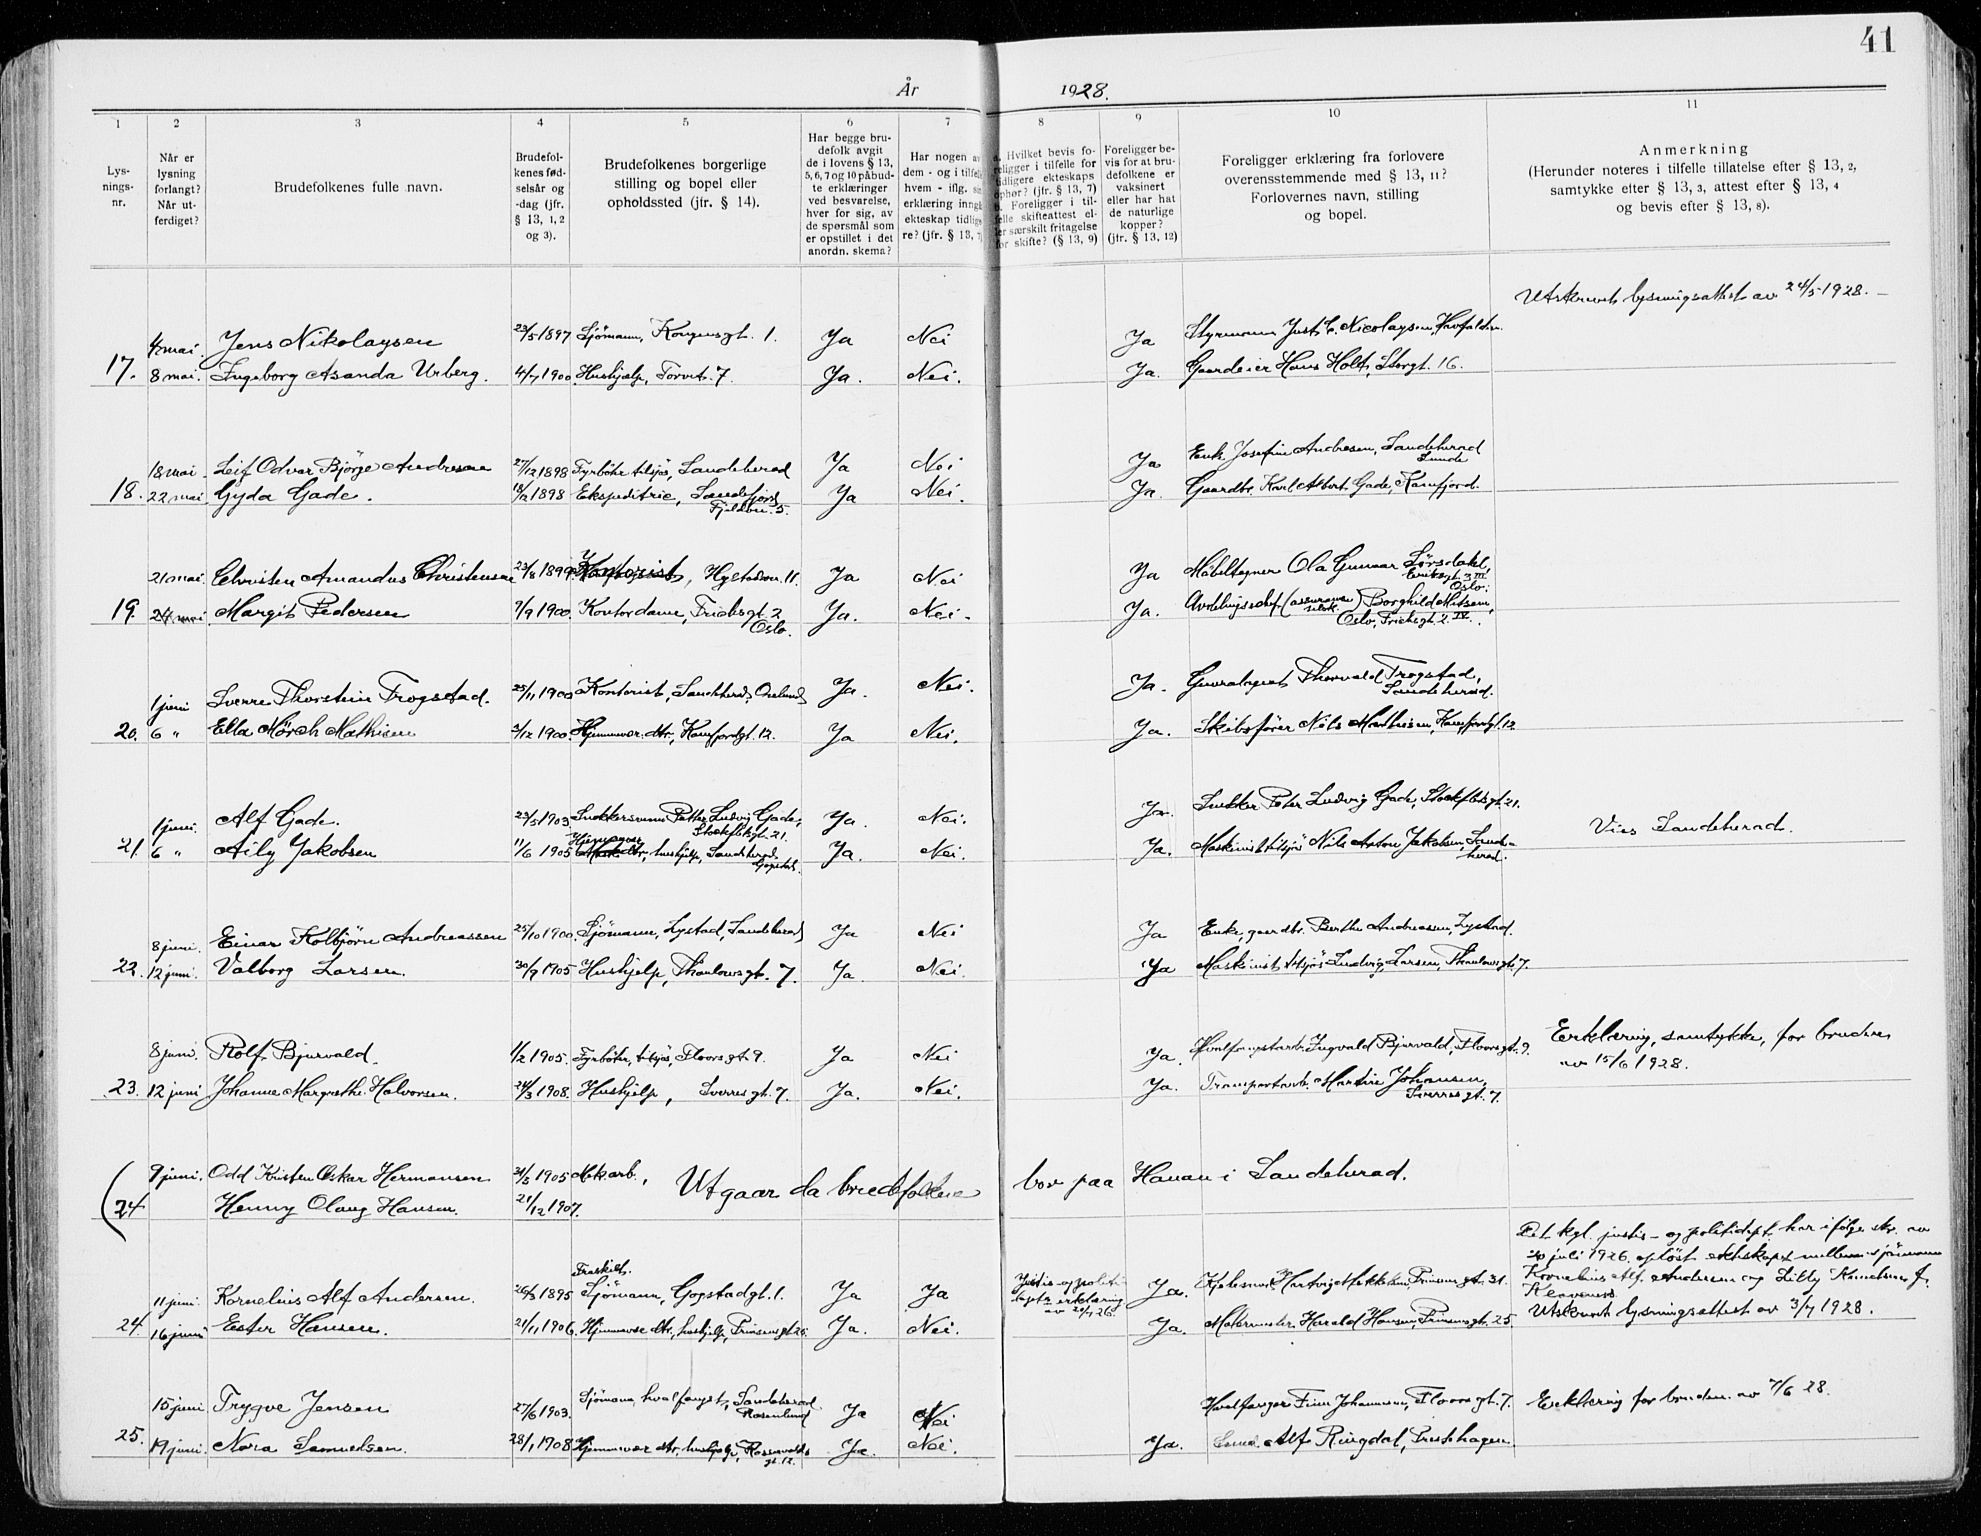 41
År 1928.
1 2 3 4 5 6 7 8 9 10 11
Lys-
nings-
nr.
Når er
lysning
forlangt?
Når ut-
ferdiget?
Brudefolkenes fulle navn.
Brudefol-
kenes fød-
selsår og
-dag (jfr.
§ 13, 1, 2
og 3).
Brudefolkenes borgerlige
stilling og bopel eller
opholdssted (jfr. § 14).
Har begge bru-
defolk avgit
de i lovens § 13,
5, 6, 7 og 10 påbud-
te erklæringer
ved besvarelse,
hver for sig, av
de spørsmål som
er opstillet i det
anordn. skema?
Har nogen av
dem - og i tilfelle
hvem - iflg. sin
erklæring inngå
ekteskap tidlige
re? (jfr. § 13, 7
a. Hvilket bevis fo-
religger i tilfelle for
tidligere ekteskaps
ophør? (jfr. § 13, 7)
b. Foreligger i til-
felle skifteattest el-
ler særskilt fritagelse
for skifte? (§ 13, 9)
Foreligger be-
vis for at bru-
defolkene er
vaksinert
eller har hat
de naturlige
kopper?
(jfr. § 13, 12)
Foreligger erklæring fra forlovere
overensstemmende med § 13, 11?
Forlovernes navn, stilling
og bopel.
Anmerkning
(Herunder noteres i tilfelle tillatelse efter § 13, 2,
samtykke efter § 13, 3, attest efter § 13, 4
og bevis efter § 13, 8).
Utskrevet lysningsattest av 24/5 1928.
4 mai. Jens Nikolaysen 23/5 1897 Sjömann, Kongensgt. 1. Ja Nei Ja Styrmann Just C. Nicolaysen,
17. 8 mai. Ingeborg Asanda Urberg. 4/7 1900. Hushjelp, Torvet 7. Ja. Nei. Ja. Gaardeier Hans Holt, Storgt. 16.
18 mai. Leif Odvar Björge Andresen 27/12 1898 Fyrböter tilsjös, Sandeherad Ja Nei Ja Enke Josefine Andresen, Sandeherad
Lunde
18. 22 mai Gyda Gade. 18/2 1898 Ekspeditrice, Sandefjord, Ja Nei. Ja. Gaardbr. Karl Albert Gade, Kamfjord.
Fjeldvn. 5.
21 mai. Christen Amandus Christensen 23/8 1899 Kontorist, Hystadvn. 11. Ja Nei Ja Möbeltegner Ola Gunnar Sørsdahl,
Eriksgt. 3 III
Oslo.
19. 24 mai Margit Pedersen 7/9 1900. Kontordame, Frichsgt. 2 Ja. Nei. Ja. Avdelingschef (assuranse selsk.) Borghild Matsen,
Oslo. Oslo, Frichsgt. 2 IV.
1 juni Sverre Thorstein Trogstad. 25/11 1900 Kontorist, Sandeherad, Ja. Nei. Ja. Thorvald Trogstad,
Sandeherad.
20. 6 " Ella Mörch Mathisen 3/12 1900. Hjemmev. dtr., Kamfjordgt. 12. Ja Nei. Ja. Skibsfører Nils Mathisen, Kamfjordgt. 12
1 juni. Alf Gade. 23/5 1903. Snekkersvenn Petter Ludvig Gade, Ja. Nei. Ja. Snekker Peter Ludvig Gade, Stockfletsgt. 21.
Stockfletsgt. 21.
Hjemmev.
21. 6 " Aily Jakobsen 11/6 1905 dtr., hushjelp, Sandeherad, Ja. Nei. Ja. Maskinist tilsjös Nils Anton Jakobsen, Sande-
Gogstad. herad.
Vies Sandeherad.
8 juni. Einar Kolbjörn Andreassen 25/10 1900. Sjömann, Lystad, Sandeherad Ja Nei Ja Enke, gaardbr. Berthe Andreassen, Lystad.
22. 12 juni. Valborg Larsen. 30/9 1905 Hushjelp, Thaulowsgt. 7. Ja Nei. Ja Maskinist tilsjös Ludvig Larsen, Thaulowsgt. 7.
8 juni. Rolf Bjurvald. 1/2 1905. Fyrböter, tilsjös, Floorsgt. 9. Ja Nei Ja. Hvalfangstarb. Ingvald Bjurvald, Floorsgt. 9.
Erklæring, samtykke, for bruden
av 15/6 1928.
23. 12 juni Johanne Margrethe Halvorsen. 24/3 1908. Hushjelp, Sverresgt. 7. Ja. Nei. Ja. Transportarb. Martin Johansen,
Sverresgt. 7.
9 juni. Odd Kristen Oskar Hermansen 31/5 1905 Mek. arb., Utgaar da brudefolkene bor paa Hanan i Sandeherad.
(24 Henny Olaug Hansen. 21/12 1907.
Det kgl. justis- og politidept. har ifölge skr. av
20 juli 1926 oplöst ekteskapet mellem sjömann
Kornelius Alf Andersen og Lilly
Klavenes.
Fraskilt.
11 juni. Kornelius Alf Andersen. 26/3 1895 Sjömann, Gogstadgt. 1. Ja Ja Justis og politi-
depts erklæring
av 20/7 26. Ja. Hartvig Mikkelsen, Prinsensgt. 31.
24. 16 juni Ester Hansen. 21/11 1906. Hjemmevær. dtr., hushjelp, Prinsensgt 25. Ja. Nei. Ja. Malermester Harald Hansen, Prinsensgt. 25 Utskrevet lysningsattest av 3/7 1928.
15 juni Trygve Jensen 27/6 1903. Sjömann, hvalfangst, Sandeherad Ja Nei Hvalfanger Finn Johannesen, Floorsgt. 7. Erklæring for bruden av 7/6 28.
Rosenlund
25. 19 juni. Nora Samuelsen. 28/1 1908 Hjemmevær. dtr., hushjelp, Rosenvolds Ja. Nei. Ja. Alf Ringdal, Prestehagen.
gt. 12.